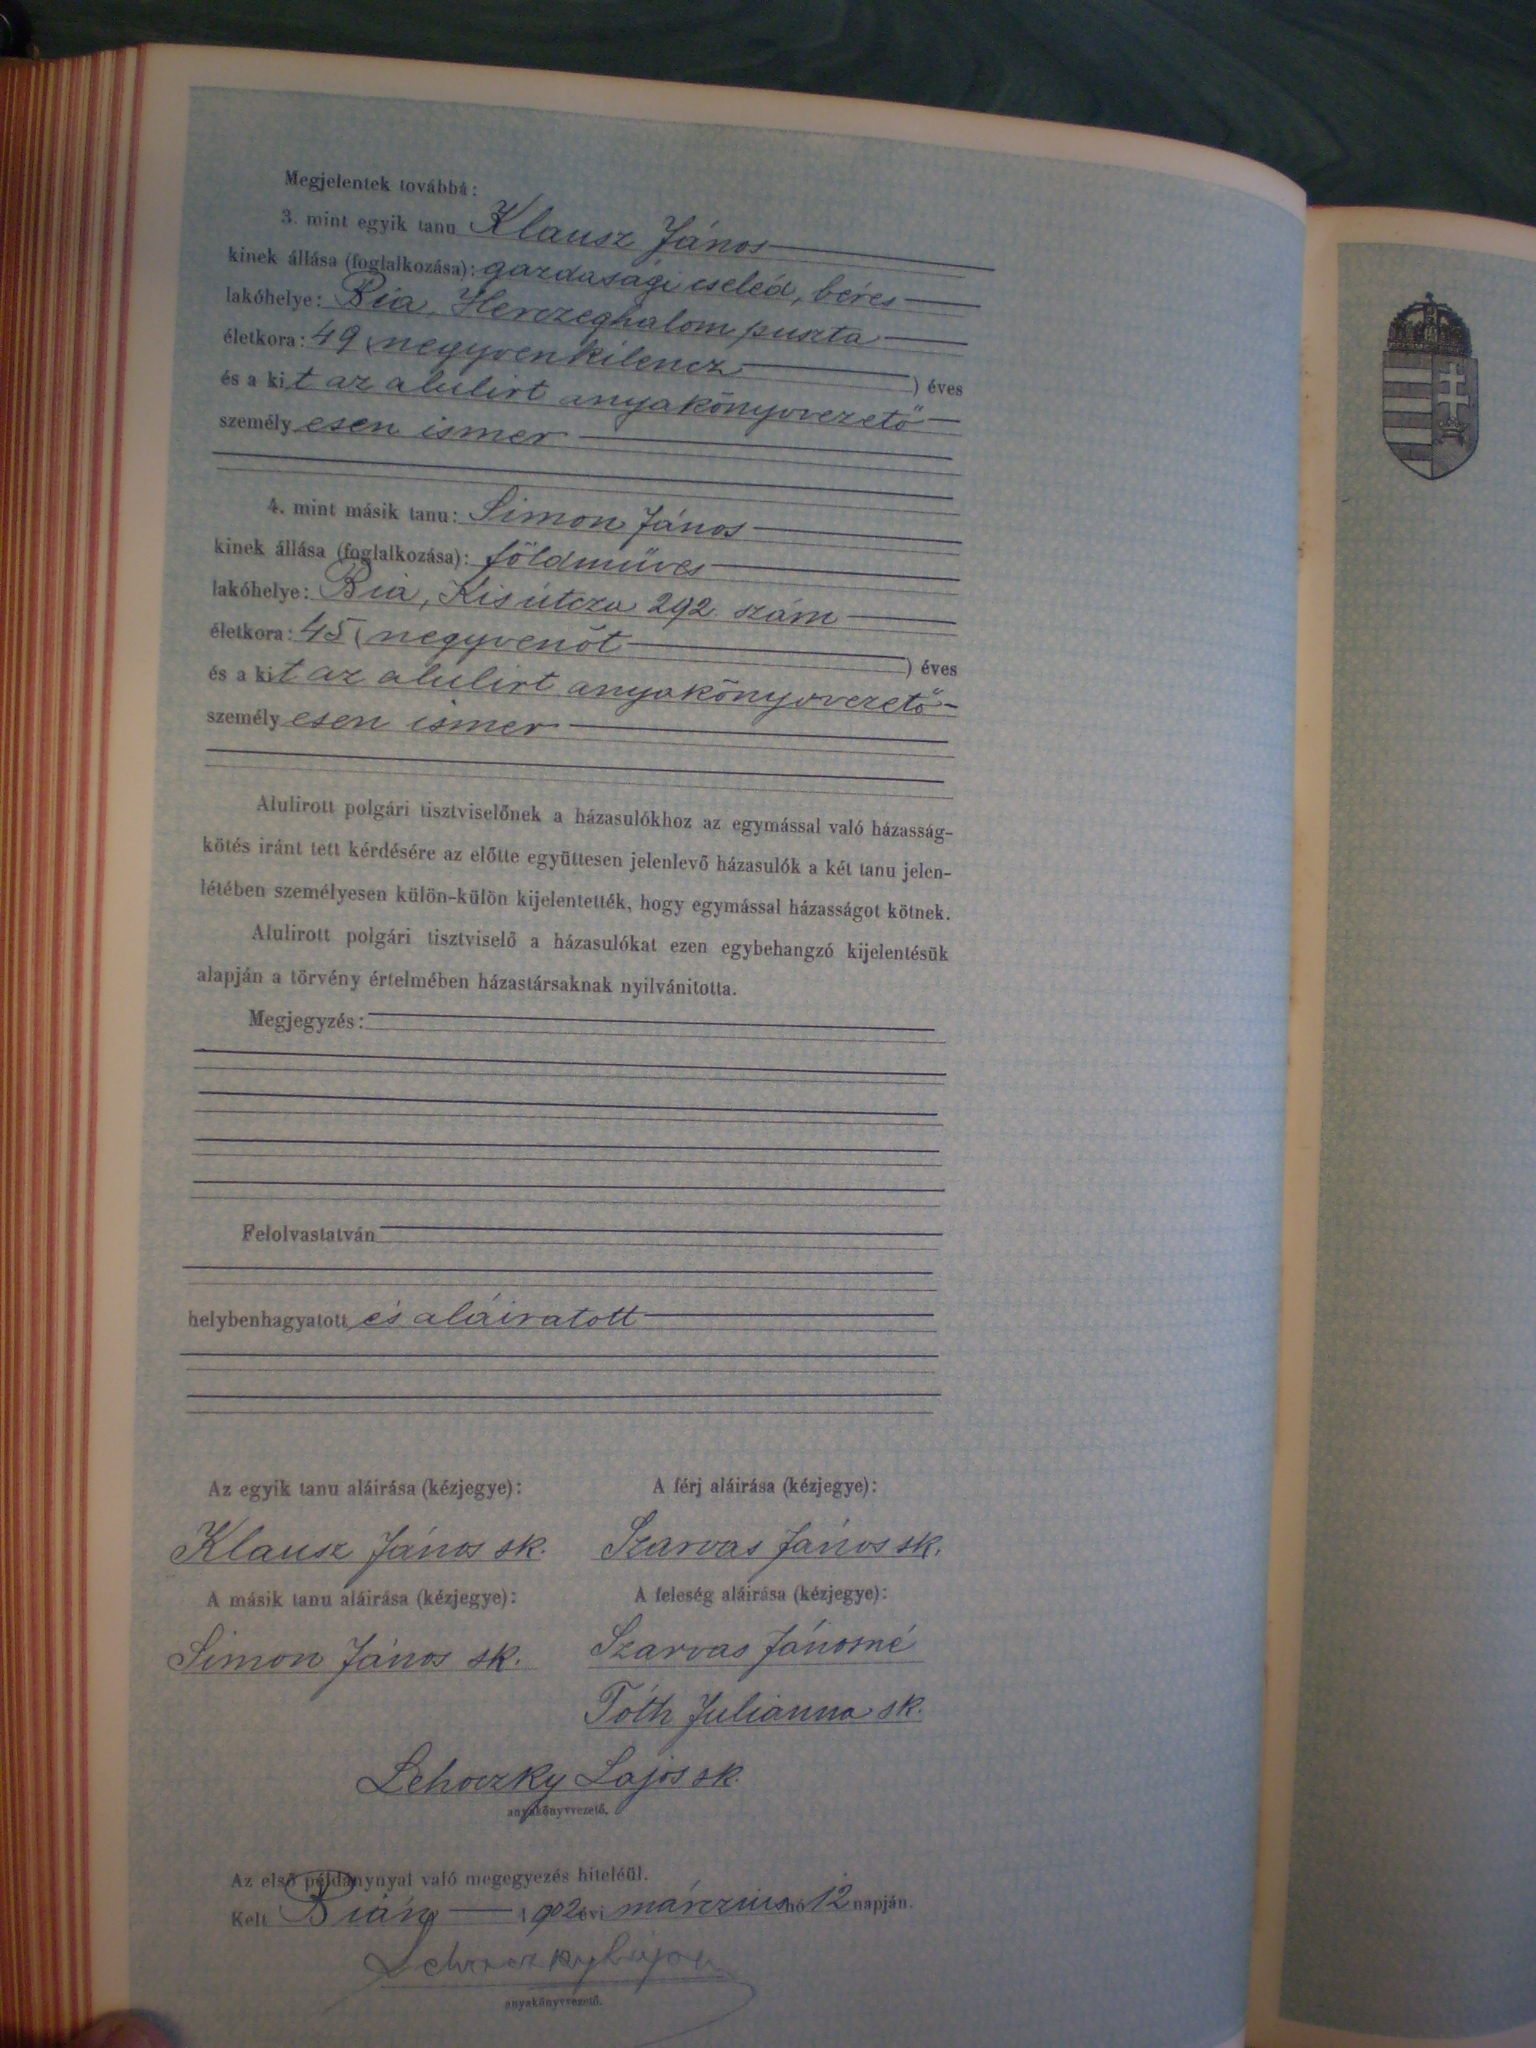 Megjelentek továbbá:
3. mint egyik tanu Klausz János
kinek állása (foglalkozása): gazdasági cseléd, béres
lakóhelye: Bia, Herczeghalom puszta
életkora: 49 (negyvenkilencz ) éves
és a kit az alulirt anyakönyvvezető
személyesen ismer
4. mint másik tanu: Simon János
kinek állása (foglalkozása): földműves
lakóhelye: Bia, Kis útcza 292 szám
életkora: 45 (negyvenöt ) éves
és a kit az alulirt anyakönyvvezető
személyesen ismer
Alulirott polgári tisztviselőnek a házasulókhoz az egymással való házasság-
kötés iránt tett kérdésére az előtte együttesen jelenlevő házasulók a két tanu jelen-
létében személyesen külön-külön kijelentették, hogy egymással házasságot kötnek.
Alulirott polgári tisztviselő a házasulókat ezen egybehangzó kijelentésük
alapján a törvény értelmében házastársaknak nyilvánitotta.
Megjegyzés:
Felolvastatván
helybenhagyatott és aláiratott
Az egyik tanu aláirása (kézjegye): A férj aláirása (kézjegye):
Klausz János sk. Szarvas János sk.
A másik tanu aláirása (kézjegye): A feleség aláirása (kézjegye):
Simon János sk. Szarvas Jánosné
Tóth Julianna sk.
Lehoczky Lajos sk.
anyakönyvvezető.
Az első példánynyal való megegyezés hiteléül.
Kelt Bián 1902 évi márczius hó 12 napján.
Lehoczky Lajos
anyakönyvvezető.